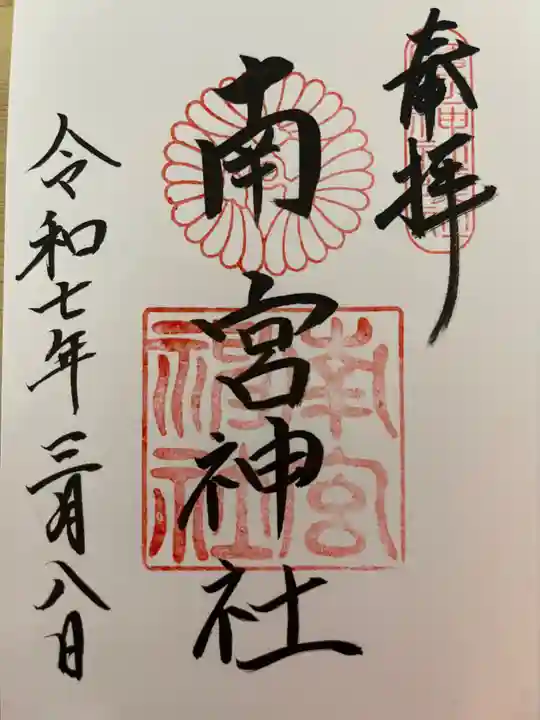 奉拝
南宮神社
南宮神社
令和七年三月八日